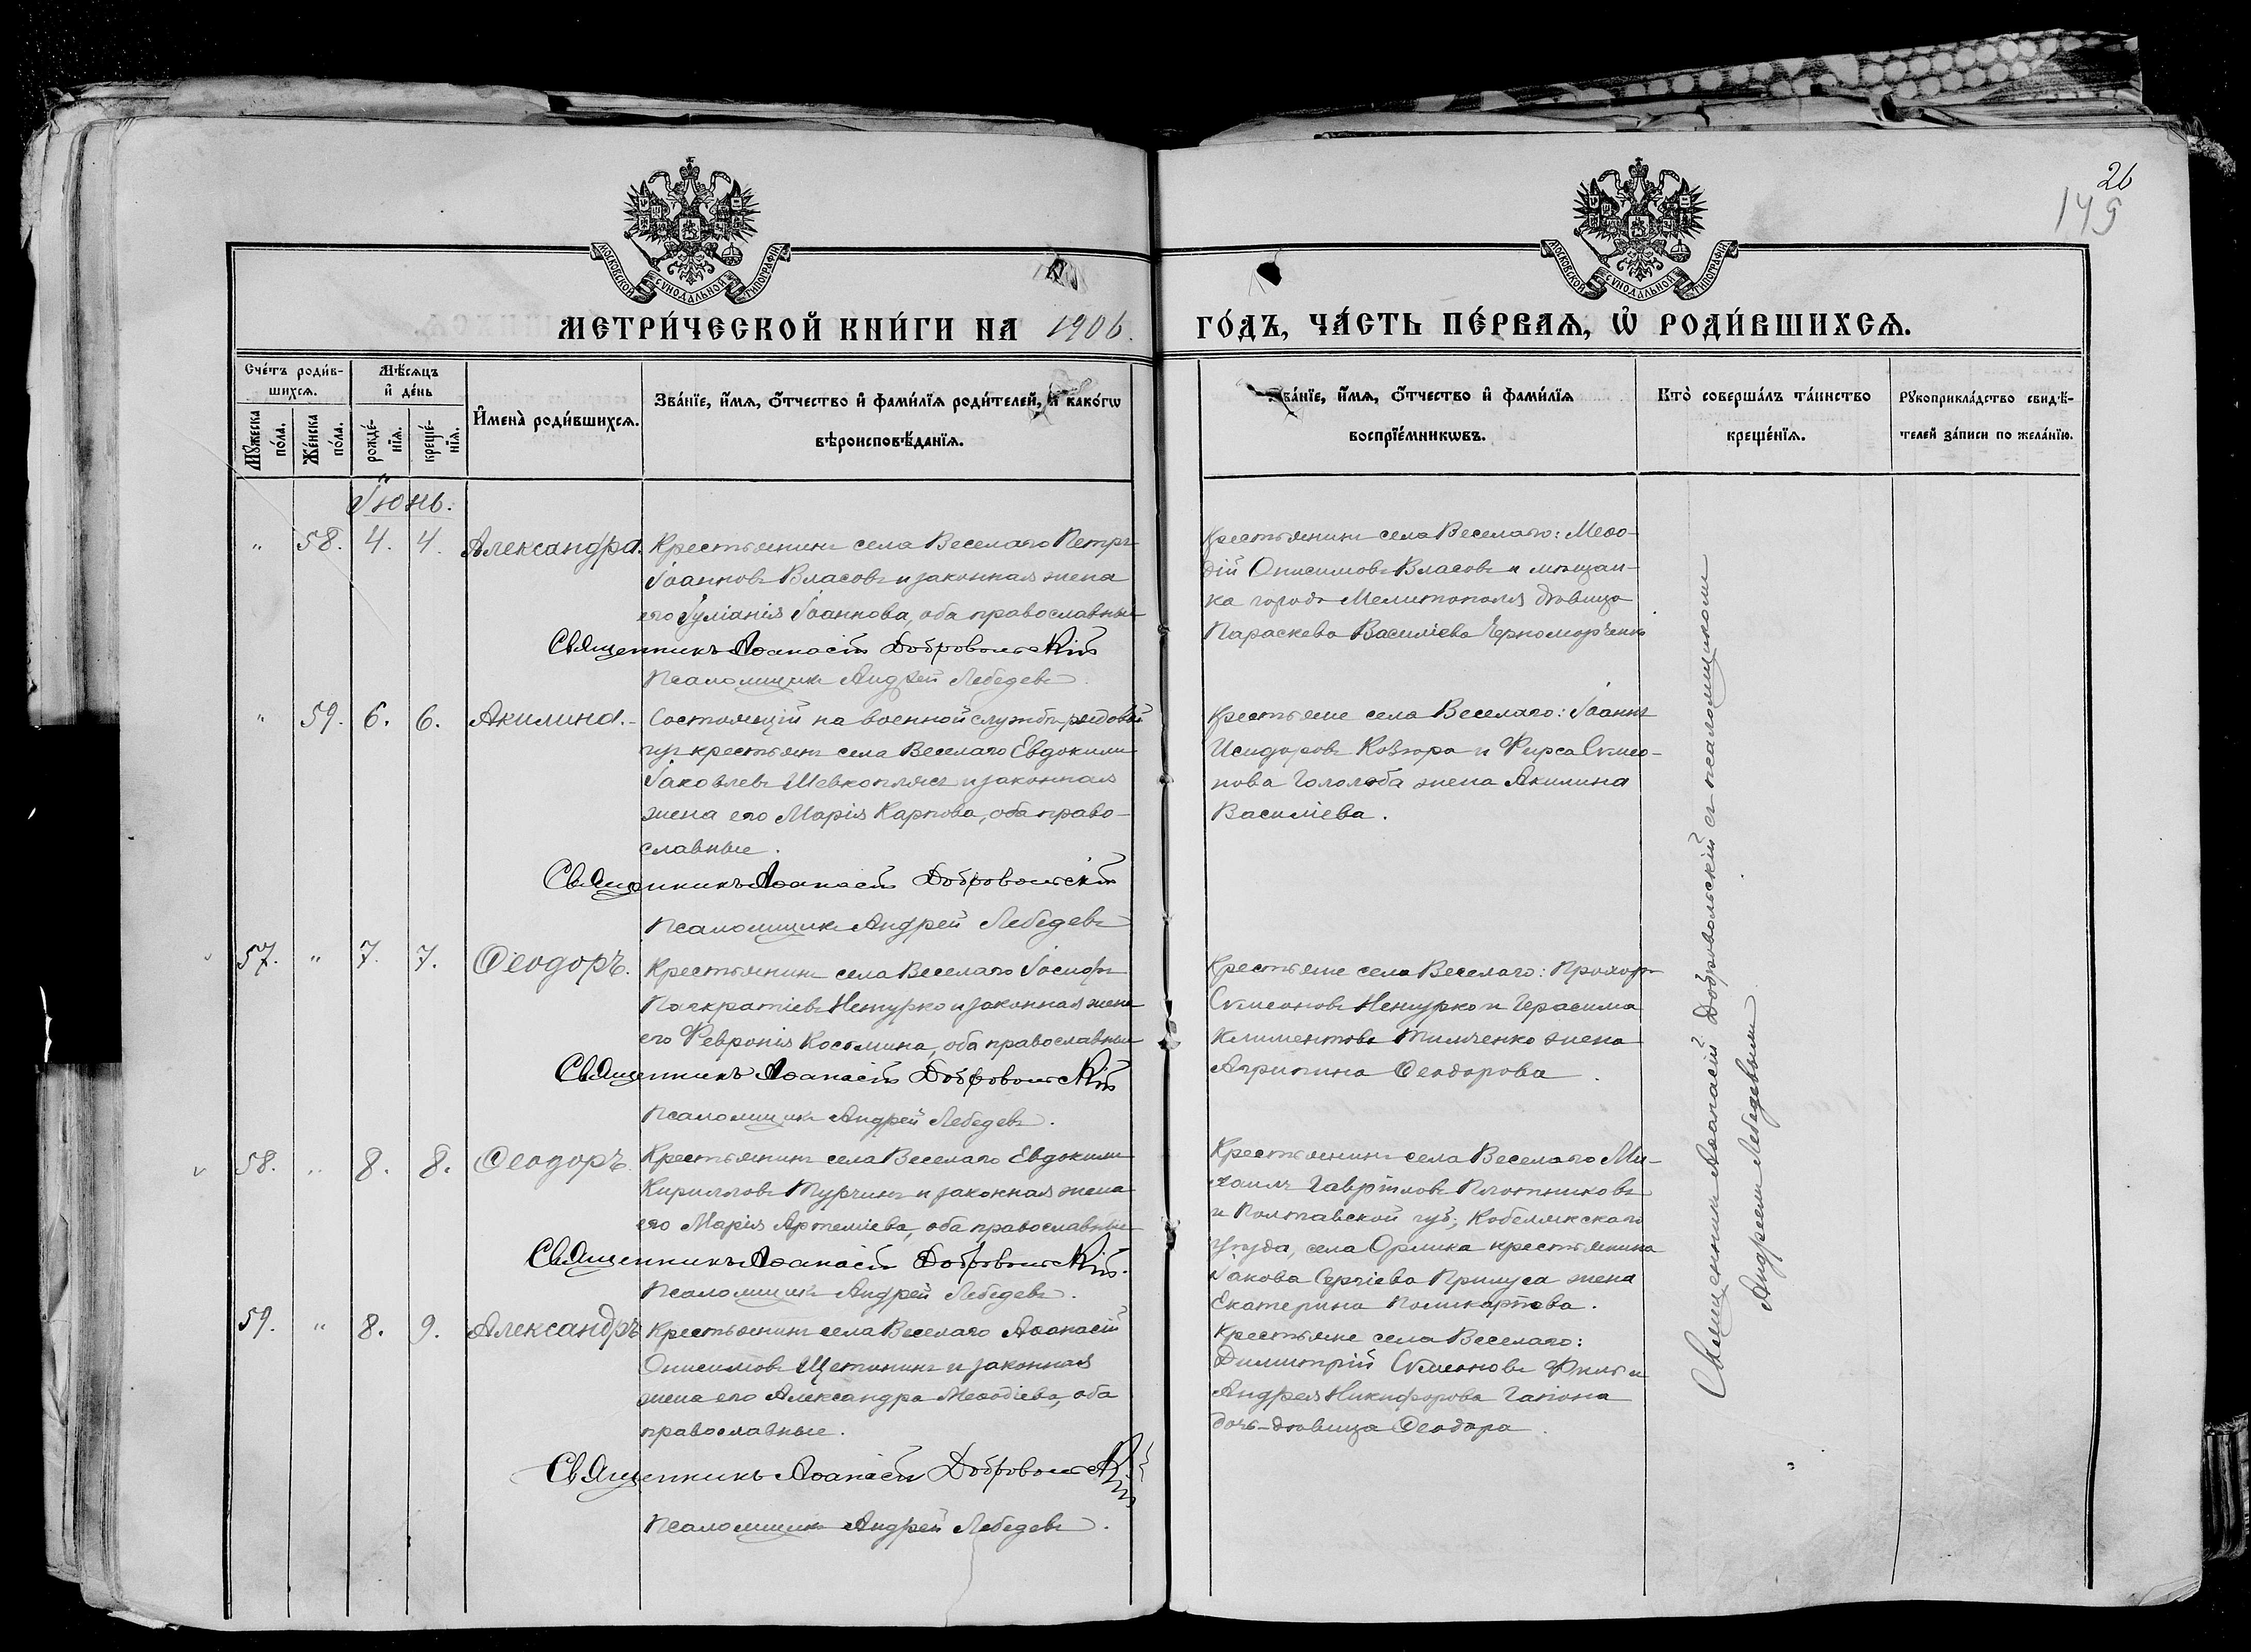 26
175
МОСКОВСКОЙ СѴНОДАЛЬНОЙ ТИПОГРАФІИ
МОСКОВСКОЙ СѴНОДАЛЬНОЙ ТИПОГРАФІИ
МЕТРИ́ЧЕСКОЙ КНИ́ГИ НА 1906.
ГО́ДЪ, ЧА́СТЬ ПЕ́РВАѦ, Ѡ҆ РОДИ́ВШИХСѦ.
Сче́тъ роди́в-
шихсѧ.
Мѣ́сѧцъ
и҆ де́нь
Мꙋ́жеска по́ла.
Же́нска по́ла.
рожде́-
нїѧ.
креще́-
нїѧ.
И҆мена̀ роди́вшихсѧ.
Зва́нїе, и҆́мѧ, ѻ҆́тчество и҆ фами́лїѧ роди́телей, и҆ како́гѡ
вѣроисповѣ́данїѧ.
Зва́нїе, и҆́мѧ, ѻ҆́тчество и҆ фами́лїѧ
воспрїе́мникѡвъ.
Кто̀ соверша́лъ та́инство
креще́нїѧ.
Рꙋкоприкла́дство свидѣ́-
телей за́писи по жела́нїю.
Іюнь.
" 58. 4. 4. Александра. Крестьянинъ села Веселаго Петръ
Іоанновъ Власовъ и законная жена
его Іуліанія Іоаннова, оба православные
Священникъ Аѳанасій Добровольскій
Псаломщикъ Андрей Лебедевъ.
Крестьянинъ села Веселаго: Меѳо-
дій Онисимовъ Власовъ и мѣщан-
ка города Мелитополя дѣвица
Параскева Василіева Черноморченко
" 59. 6. 6. Акилина. Состоящій на военной службѣ рядовой
изъ крестьянъ села Веселаго Евдокимъ
Іаковлевъ Шевкоплясъ и законная
жена его Марія Карпова, оба право-
славные.
Священникъ Аѳанасій Добровольскій
Псаломщикъ Андрей Лебедевъ
Крестьяне села Веселаго: Іоаннъ
Исидоровъ Ковтора и Фирса Симео-
нова Гололоба жена Акилина
Василіева.
57. " 7. 7. Ѳеодоръ. Крестьянинъ села Веселаго Іосифъ
Панкратіевъ Нетурко и законная жена
его Февронія Космина, оба православные
Священникъ Аѳанасій Добровольскій
Псаломщикъ Андрей Лебедевъ.
Крестьяне села Веселаго: Прохоръ
Симеоновъ Нетурко и Герасима
Климентова Тимченко жена
Агрипина Ѳеодорова.
58. " 8. 8. Ѳеодоръ. Крестьянинъ села Веселаго Евдокимъ
Кирилловъ Турчинъ и законная жена
его Марія Артеміева, оба православные
Священникъ Аѳанасій Добровольскій.
Псаломщикъ Андрей Лебедевъ.
Крестьянинъ села Веселаго Ми-
хаилъ Гавріиловъ Плотниковъ
и Полтавской губ., Кобелякскаго
уѣзда, села Орлика крестьянина
Іакова Сергіева Примуса жена
Екатерина Поликарпова.
59. " 8. 9. Александръ Крестьянинъ села Веселаго Аѳанасій
Онисимовъ Щетининъ и законная
жена его Александра Меѳодіева, оба
православные.
Священникъ Аѳанасій Добровольскій
Псаломщикъ Андрей Лебедевъ.
Крестьяне села Веселаго:
Димитрій Симеоновъ и
Андрея Никифорова Гапона
дочь-дѣвица Ѳеодора.
Священникъ Аѳанасій Добровольскій съ псаломщикомъ
Андреемъ Лебедевымъ